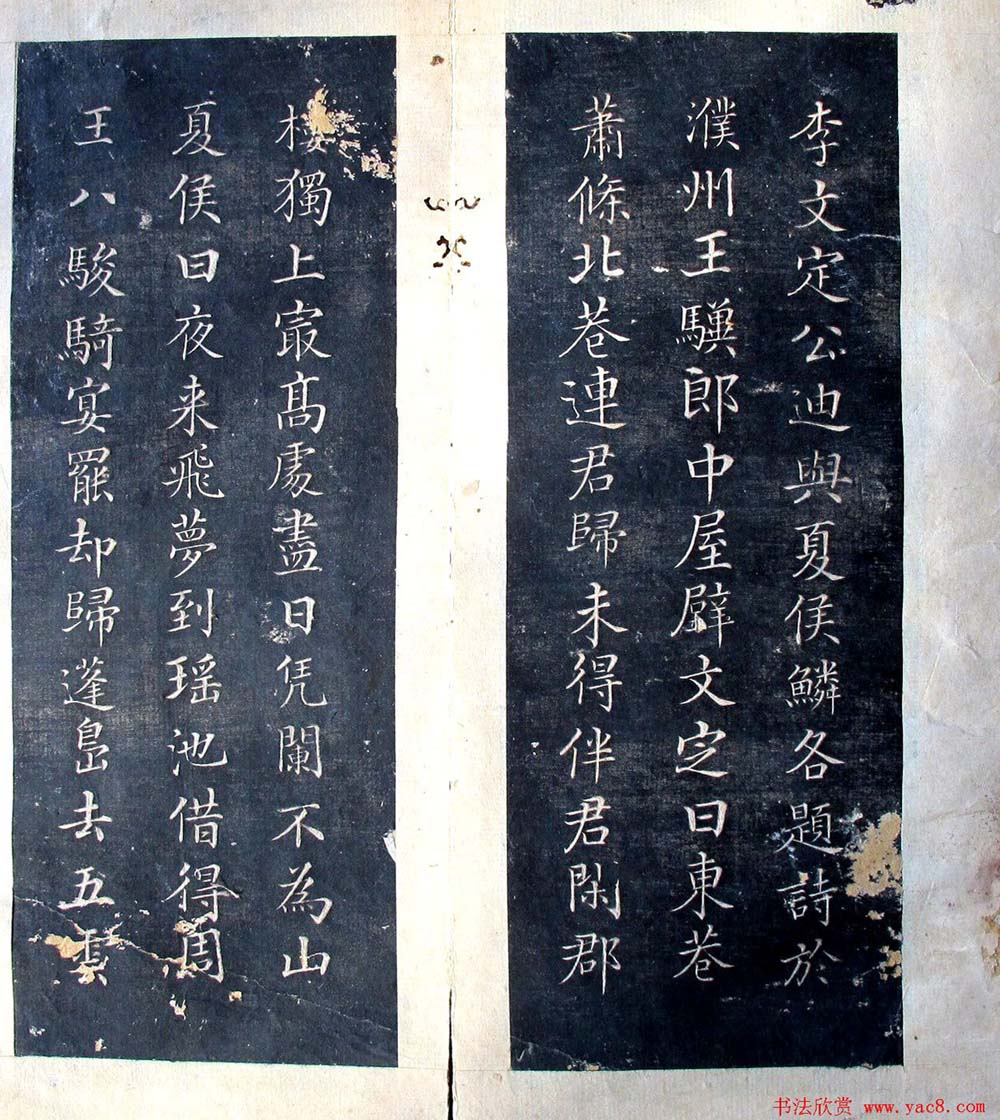 李文定公迪與夏侯鱗各題詩於
濮州王驥郎中屋壁文定曰東巷
蕭條北巷連君歸未得伴君閑郡
樓獨上冣髙處盡日凭闌不為山
夏侯曰夜来飛夢到瑶池借得周
王八駿騎宴罷却歸蓬島去五雲
书法欣赏 www.yac8.com